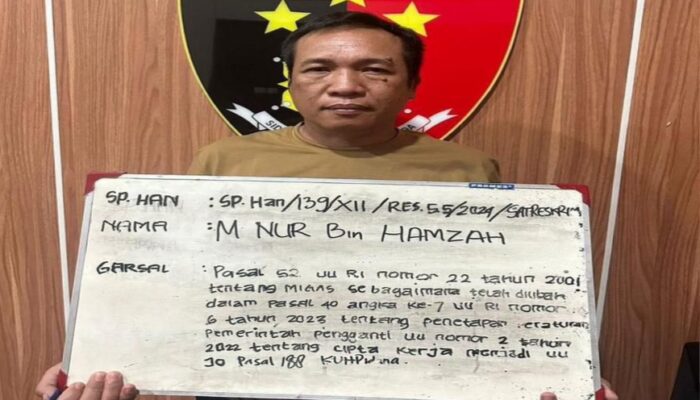 SP. HAN : SP. Han/139/XII/RES.5.5/2024/SATRESKRIM
NAMA : M NUR Bin HAMZAH
GARSAL : Pasal 52 UU RI nomor 22 tahun 2001
tentang MIGAS sebagaimana telah diubah
dalam pasal 40 angka ke-7 UU RI nomor
6 tahun 2023 tentang penetapan Peraturan
Pemerintah Pengganti UU nomor 2 tahun
2022 tentang cipta kerja menjadi UU
JO Pasal 188 KUHPidana.